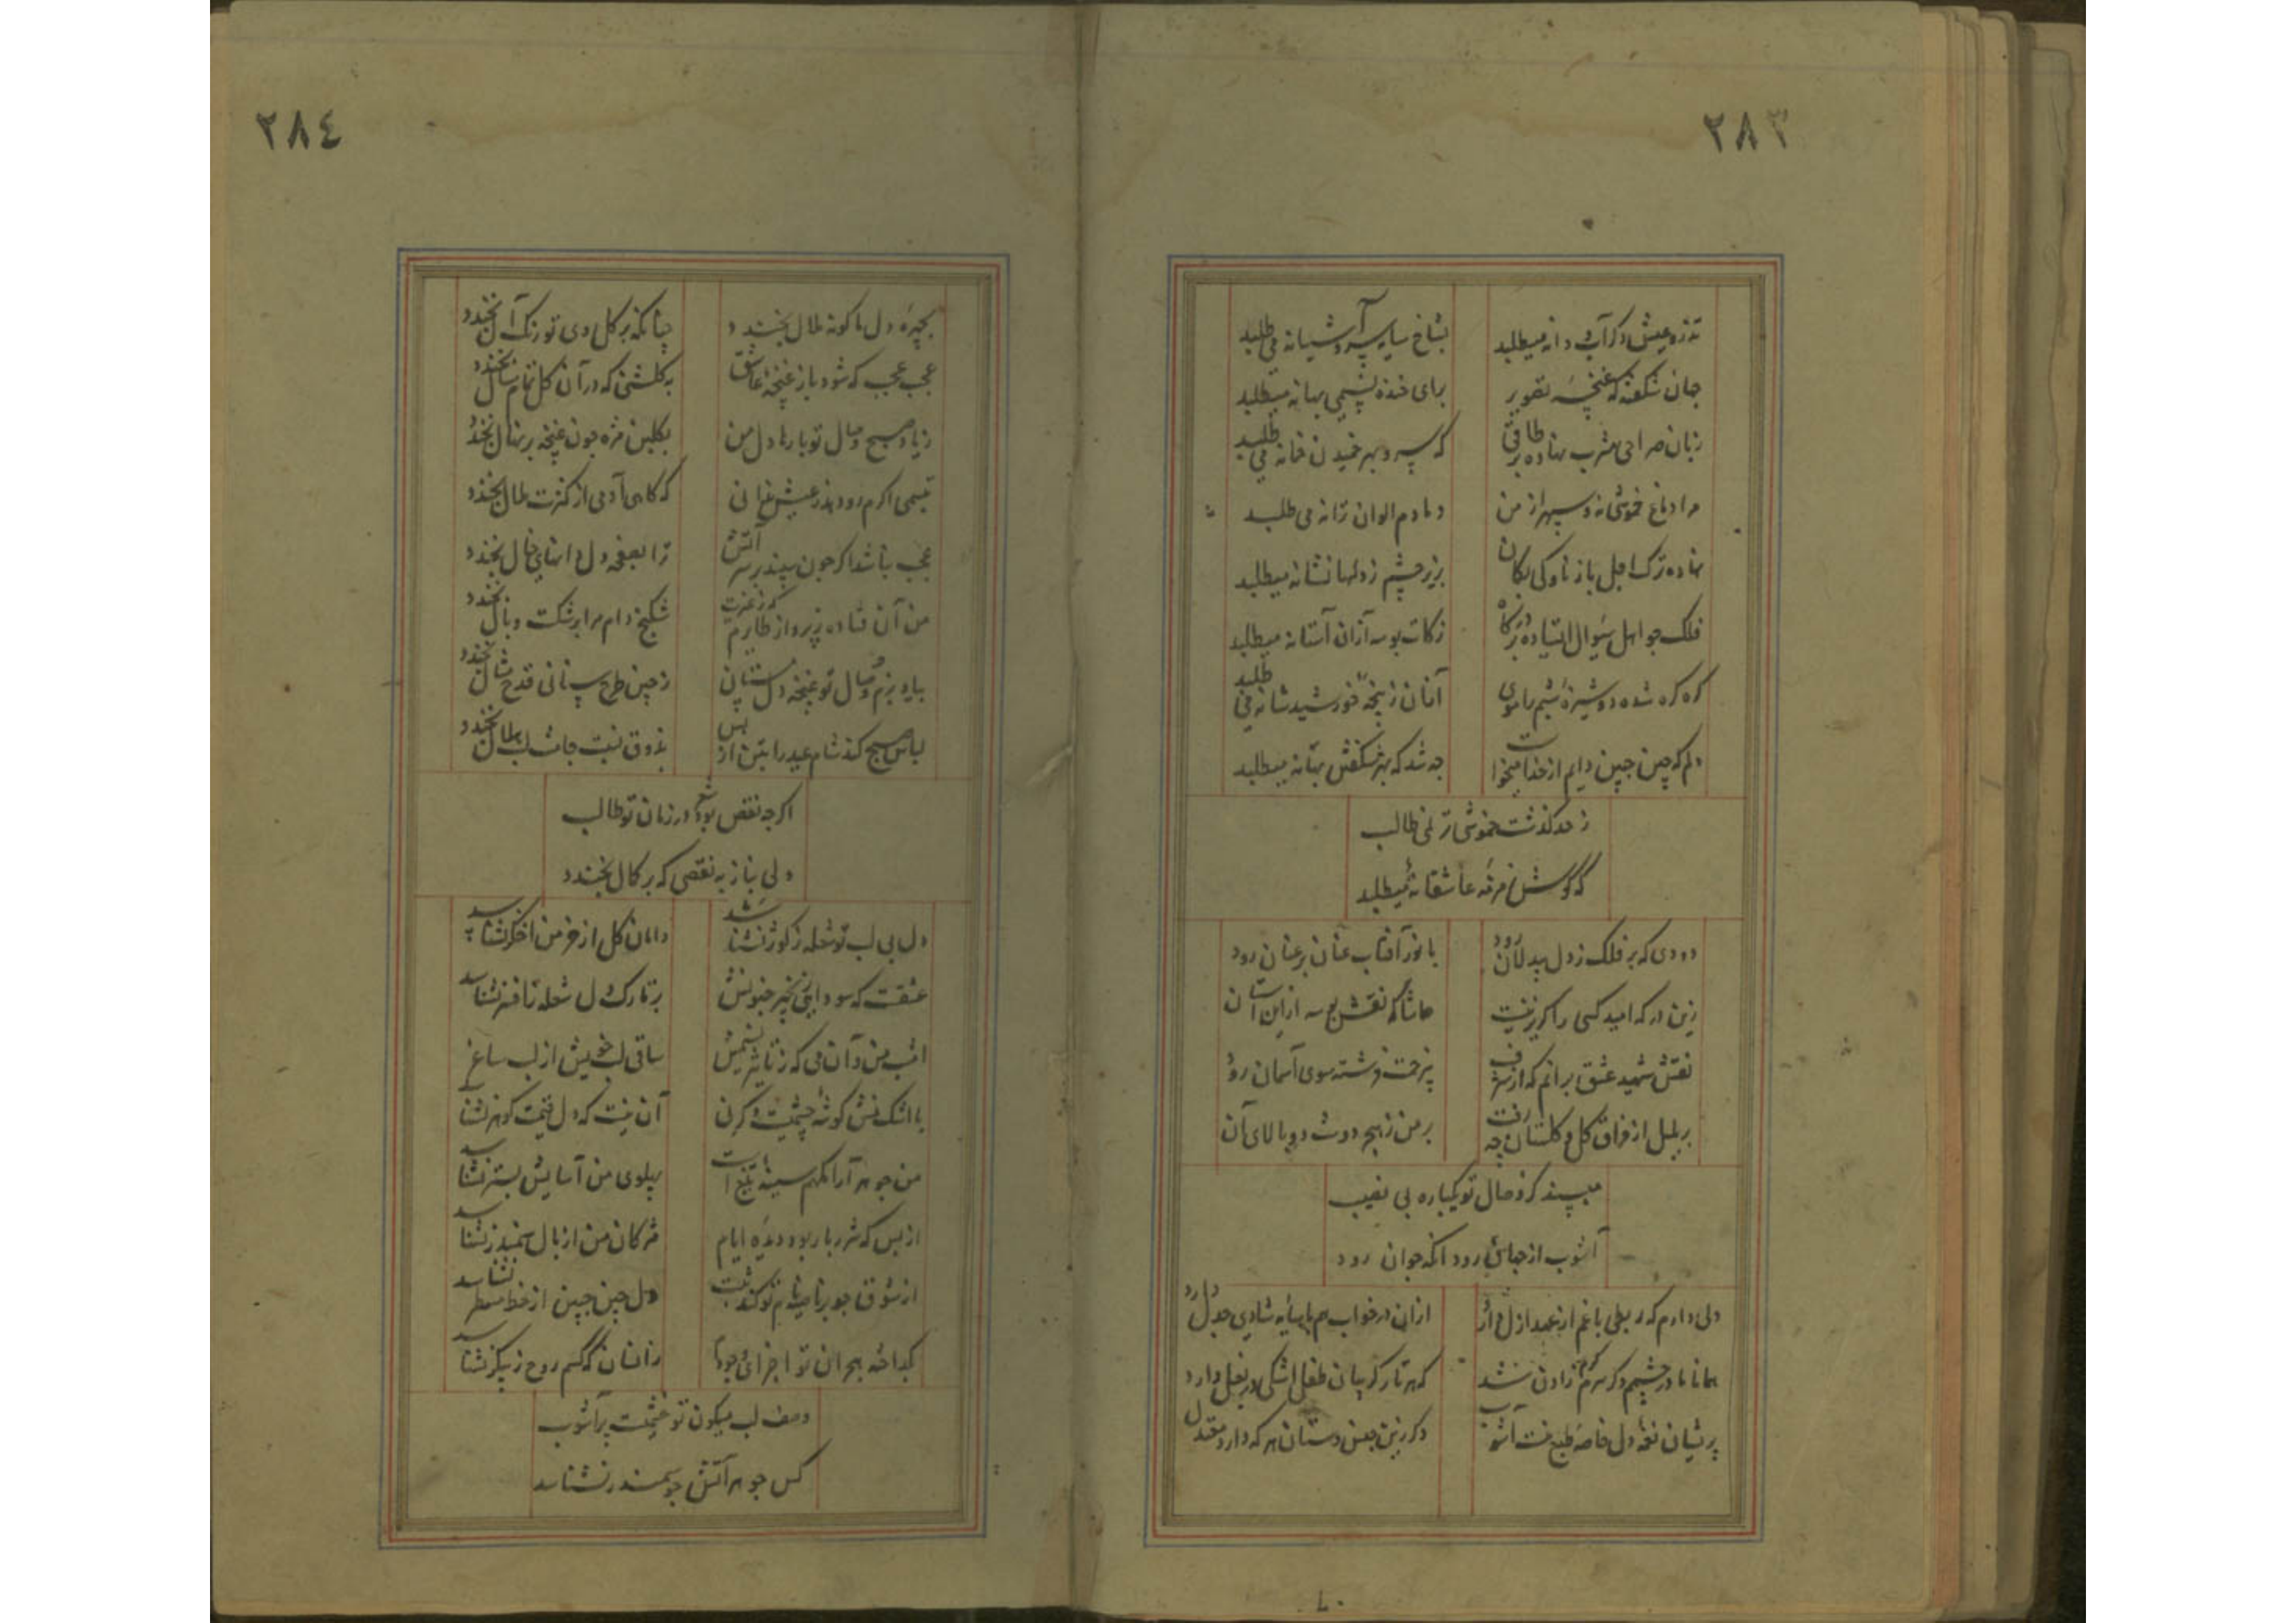 ٢٨٣
تذرو عیش دگر آب و دانه میطلبد
بشاخ سایه سرو آشیانه می طلبد
چنان شکفته که غنچه تصویر
برای خنده بهانه میطلبد
زبان صراحی مشرب نهاده بر طاقی
که بهر خمیدن خانه می طلبد
مرا دماغ خموشی نه و سپهر از من
دمادم الوان ترانه می طلبد
نهاده ترک اجل باز ناوکی بکمان
بزیر چشم ز دلها نشانه میطلبد
فلک چو اهل سؤال ایستاده بر درگاه
زکات بوسه از آن آستانه میطلبد
گره گره شده دوشیزه شبم را موی
از آن ز پنجه خورشید شانه می طلبد
دلم که چین جبین دایم از خدا میخواست
چه شد که بهر شکفتن بهانه میطلبد
ز حد گذشت خموشی ترنمی طالب
که گوش زمزمه عاشقانه میطلبد
دودی که بر فلک ز دل بیدلان رود
با نور آفتاب عنان بر عنان رود
زین در که امید کسی را گریز نیست
حاشا که نقش بوسه ازین آستان
نقش شهید عشق برانم که از شرف
فرشته سوی آسمان رود
بر بلبل از فراق گل و گلستان چه رفت
بر من ز هجر دوست دو بالای آن
مپسند کز وصال تو یکباره بی نصیب
آشوب از جهان رود انگه جوان رود
دلی دارم که ربطی با غم از عهد ازل دارد
از ان در خواب هم با سایه شادی جدل دارد
همانا مادر چشم دگر سرگرم زادن شد
که هر تار گریبان طفل اشکی در بغل دارد
پریشان نغمه دل خاصه طبع منست آشوب
دگر زین جنس دستان هر که دارد مبتذل
٢٨٤
بچهره دل ما گونه ملال بخندد
چنانکه بر گل روی تو رنگ آل بخندد
عجب عجب که شود باز غنچه عاشق
به گلشنی که در آن گل تمام سال بخندد
ز یاد صبح وصال تو بارها دل من
بگلبن مژه چون غنچه بر نهال بخندد
تبسمی اگرم رو دهد ز عیش مرانی
که گاهی آدمی از کثرت ملال بخندد
عجب نباشد اگر چون سپند بر سر آتش
ترا بصفحه دل دانهای خال بخندد
من آن فتاده ز پرواز طایرم که ز عزت
شکنج دام مرا بر شکست و بال بخندد
بیاد بزم وصال تو غنچه دل مستان
ز چین طرح پستانی قدح مثال بخندد
لباس صبح کند شام عید را بتن از بس
بذوق نسبت جانت لب هلال بخندد
اگرچه نقص بود شعر در زمان تو طالب
ولی بناز به نقصی که بر کمال بخندد
دل بی لب تو شعله ز کوثر نشناسد
دامان گل از خرمن اخگر نشناسد
عشقت که سودایی زنجیر جنونش
بر تارک دل شعله ز افسر نشناسد
امشب من و آن می که ز تاثیر نسیمش
ساقی لب خویش از لب ساغر
با اشک منش گوشه چشمیست و گرنی
آن نیست که دل قیمت گوهر نشناسد
من جوهر آرامگهم سینه تیغ است
پهلوی من آسایش بستر نشناسد
از بس که شرر بار بود دیده ایام
مژگان من از بال سمندر نشناسد
از شوق چو بر نامه نام تو کند ثبت
دل چین جبین از خط مسطر نشناسد
بگداخته هجران تو اجزای وجودم
زانسان که کسم روح ز پیکر نشناسد
وصف لب میگون تو ختمست بر آشوب
کس جوهر آتش چو سمندر نشناسد